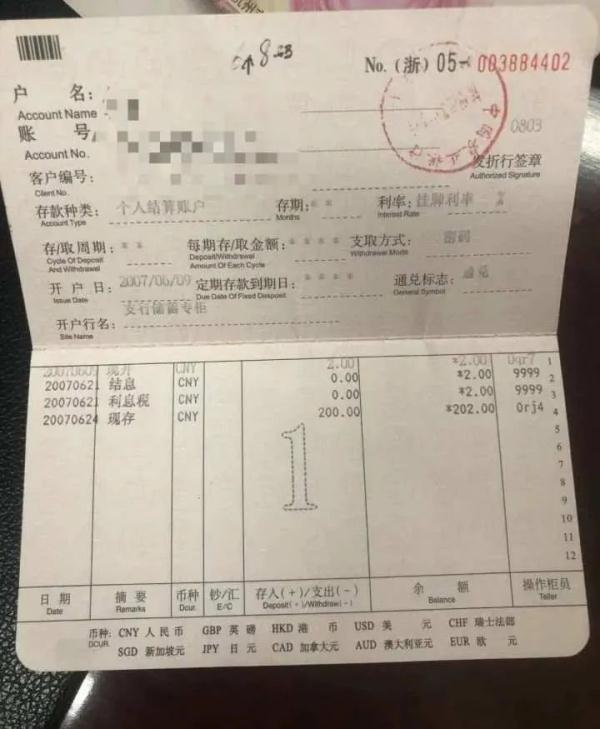 No. (浙) 05- 003884402
户 名:
Account Name
账 号
Account No.
0803
客户编号:
Client No.
发折行签章
Authorized Signature
存款种类: 个人结算账户 存期: * * 利率: 挂牌利率
Account Type Months Interest Rate
存/取周期: * * 每期存/取金额: * * * * 支取方式: 密码
Cycle Of Deposit And Withdrawal Deposit/Withdrawal Amount Of Each Cycle Withdrawal Mode
开 户 日: 2007/06/09 定期存款到期日: * * * * 通兑标志: 通兑
Issue Date Due Date Of Fixed Desposit General Symbol
开户行名: 支行储蓄专柜
Site Name
20070609 现开 CNY 2.00 *2.00 0qr7 1
20070621 结息 CNY 0.00 *2.00 9999 2
20070621 利息税 CNY 0.00 *2.00 9999 3
20070624 现存 CNY 200.00 *202.00 0rj4 4
5
6
7
8
9
10
11
12
1
日 期 摘 要 币种 钞/汇 存入(+)/支出(-) 余 额 操作柜员
Date Remarks Dcur. E/C Deposit(+)/Withdraw(-) Balance Teller
币种: CNY 人 民 币 GBP 英 镑 HKD 港 币 USD 美 元 CHF 瑞士法郎
DCUR. SGD 新加坡元 JPY 日 元 CAD 加拿大元 AUD 澳大利亚元 EUR 欧 元